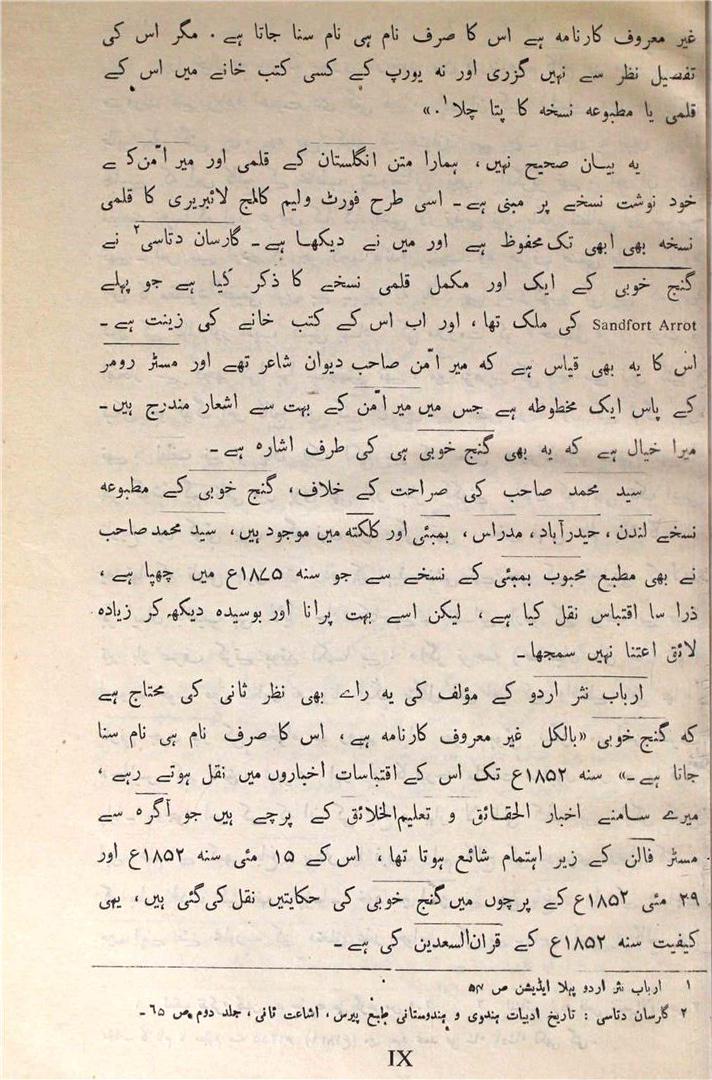 غیر معروف کارنامہ ہے اس کا صرف نام ہی نام سنا جاتا ہے . مگر اس کی
تفصیل نظر سے نہیں گزری اور نہ یورپ کے کسی کتب خانے میں اس کے
قلمی یا مطبوعہ نسخہ کا پتا چلا۱.»
یہ بیان صحیح نہیں، ہمارا متن انگلستان کے قلمی اور میر امّن کے
خود نوشت نسخے پر مبنی ہے ـ اسی طرح فورٹ ولیم کالج لائبریری کا قلمی
نسخہ بھی ابھی تک محفوظ ہے اور میں نے دیکھا ہے ـ گارسان دتاسی۲ نے
گنج خوبی کے ایک اور مکمل قلمی نسخے کا ذکر کیا ہے جو پہلے
Sandfort Arrot کی ملک تھا، اور اب اس کے کتب خانے کی زینت ہے ـ
اس کا یہ بھی قیاس ہے کہ میر امّن صاحب دیوان شاعر تھے اور مسٹر رومر
کے پاس ایک مخطوطہ ہے جس میں میر امّن کے بہت سے اشعار مندرج ہیں ـ
میرا خیال ہے کہ یہ بھی گنج خوبی ہی کی طرف اشارہ ہے ـ
سید محمد صاحب کی صراحت کے خلاف، گنج خوبی کے مطبوعہ
نسخے لندن، حیدرآباد، مدراس، بمبئی اور کلکتہ میں موجود ہیں، سید محمد صاحب
نے بھی مطبع محبوب بمبئی کے نسخے سے جو سنہ ۱۸۷۵ع میں چھپا ہے،
ذرا سا اقتباس نقل کیا ہے، لیکن اسے بہت پرانا اور بوسیدہ دیکھ کر زیادہ
لائق اعتنا نہیں سمجھا ـ
ارباب نثر اردو کے مؤلف کی یہ راے بھی نظر ثانی کی محتاج ہے
کہ گنج خوبی «بالکل غیر معروف کارنامہ ہے، اس کا صرف نام ہی نام سنا
جاتا ہے ـ» سنہ ۱۸۵۲ع تک اس کے اقتباسات اخباروں میں نقل ہوتے رہے،
میرے سامنے اخبار الحقائق و تعلیم الخلائق کے پرچے ہیں جو آگرہ سے
مسٹر فالن کے زیر اہتمام شائع ہوتا تھا، اس کے ۱۵ مئی سنہ ۱۸۵۲ع اور
۲۹ مئی ۱۸۵۲ع کے پرچوں میں گنج خوبی کی حکایتیں نقل کی گئی ہیں، یہی
کیفیت سنہ ۱۸۵۲ع کے قران السعدین کی ہے ـ
۱ ارباب نثر اردو پہلا ایڈیشن ص
۲ گارسان دتاسی : تاریخ ادبیات ہندوی و ہندوستانی طبع پیرس، اشاعت ثانی، جلد دوم ص ۶۵ ـ
IX